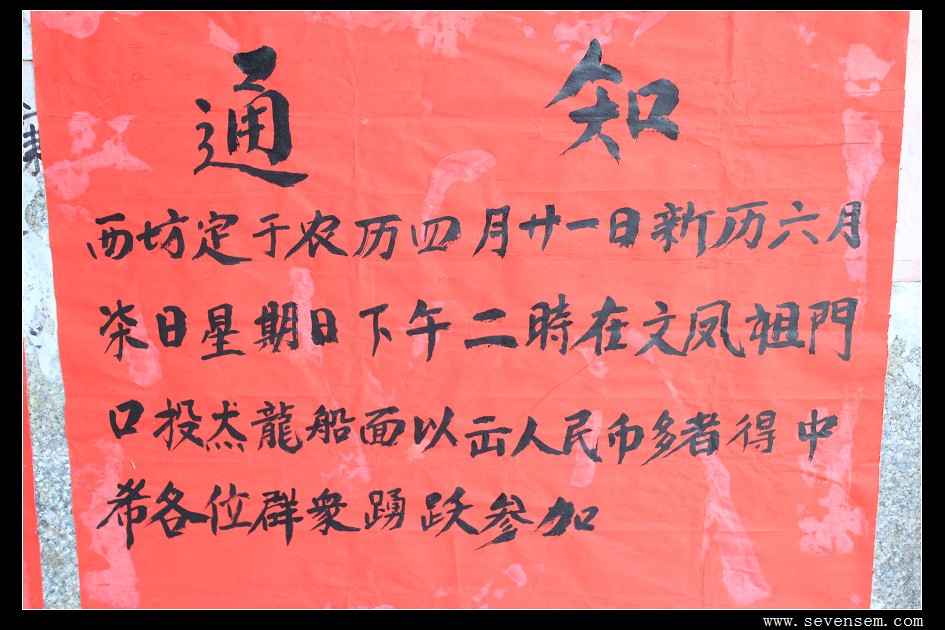 通 知
西坊定于农历四月廿一日新历六月
柒日星期日下午二時在文凤祖門
口投杰龍船面以出人民币多者得中
希各位群衆踴跃参加
www.sevensem.com